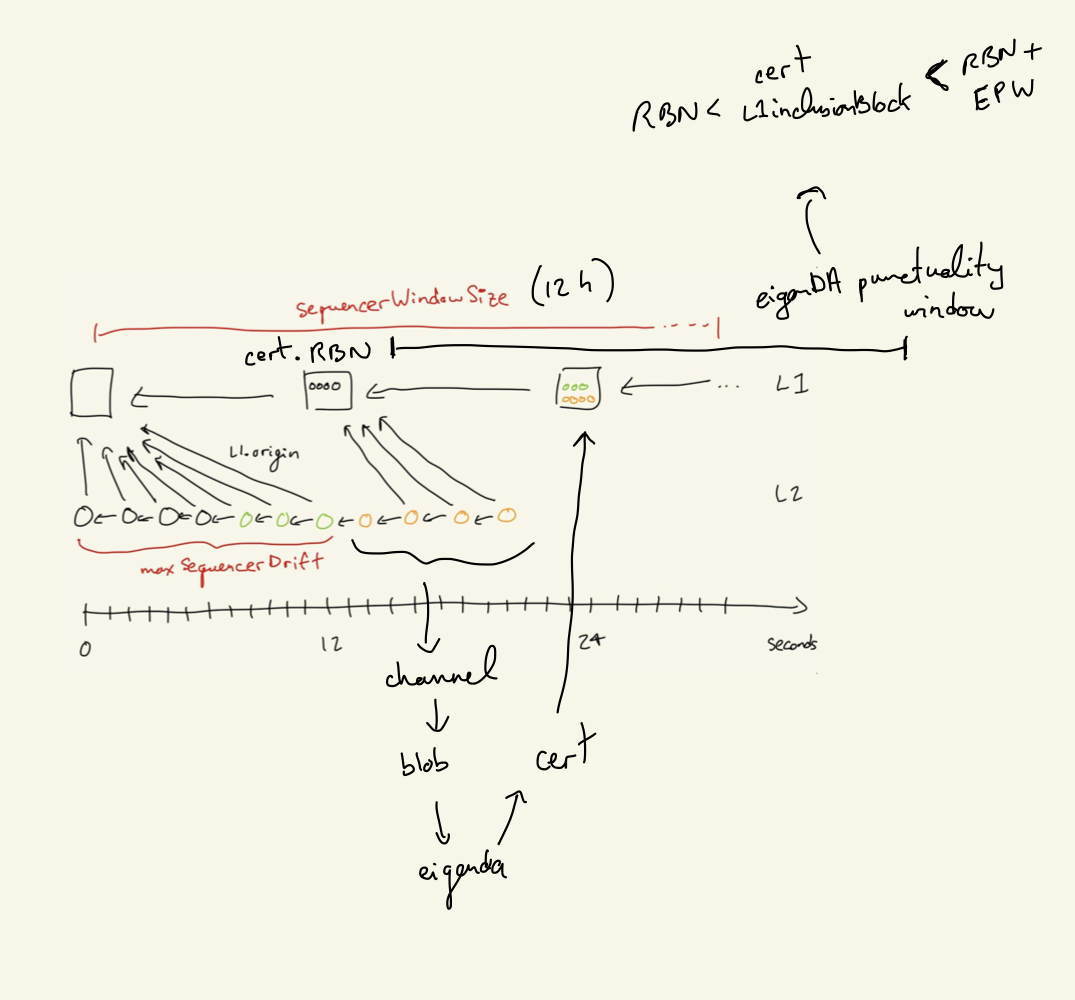 cert
RBN < L1inclusionBlock < RBN +
EPW
eigenDA punctuality
window
sequencerWindowSize (12 h)
cert.RBN
... L1
L1.origin
L2
max Sequencer Drift
0 12 24 seconds
channel
blob
cert
eigenda